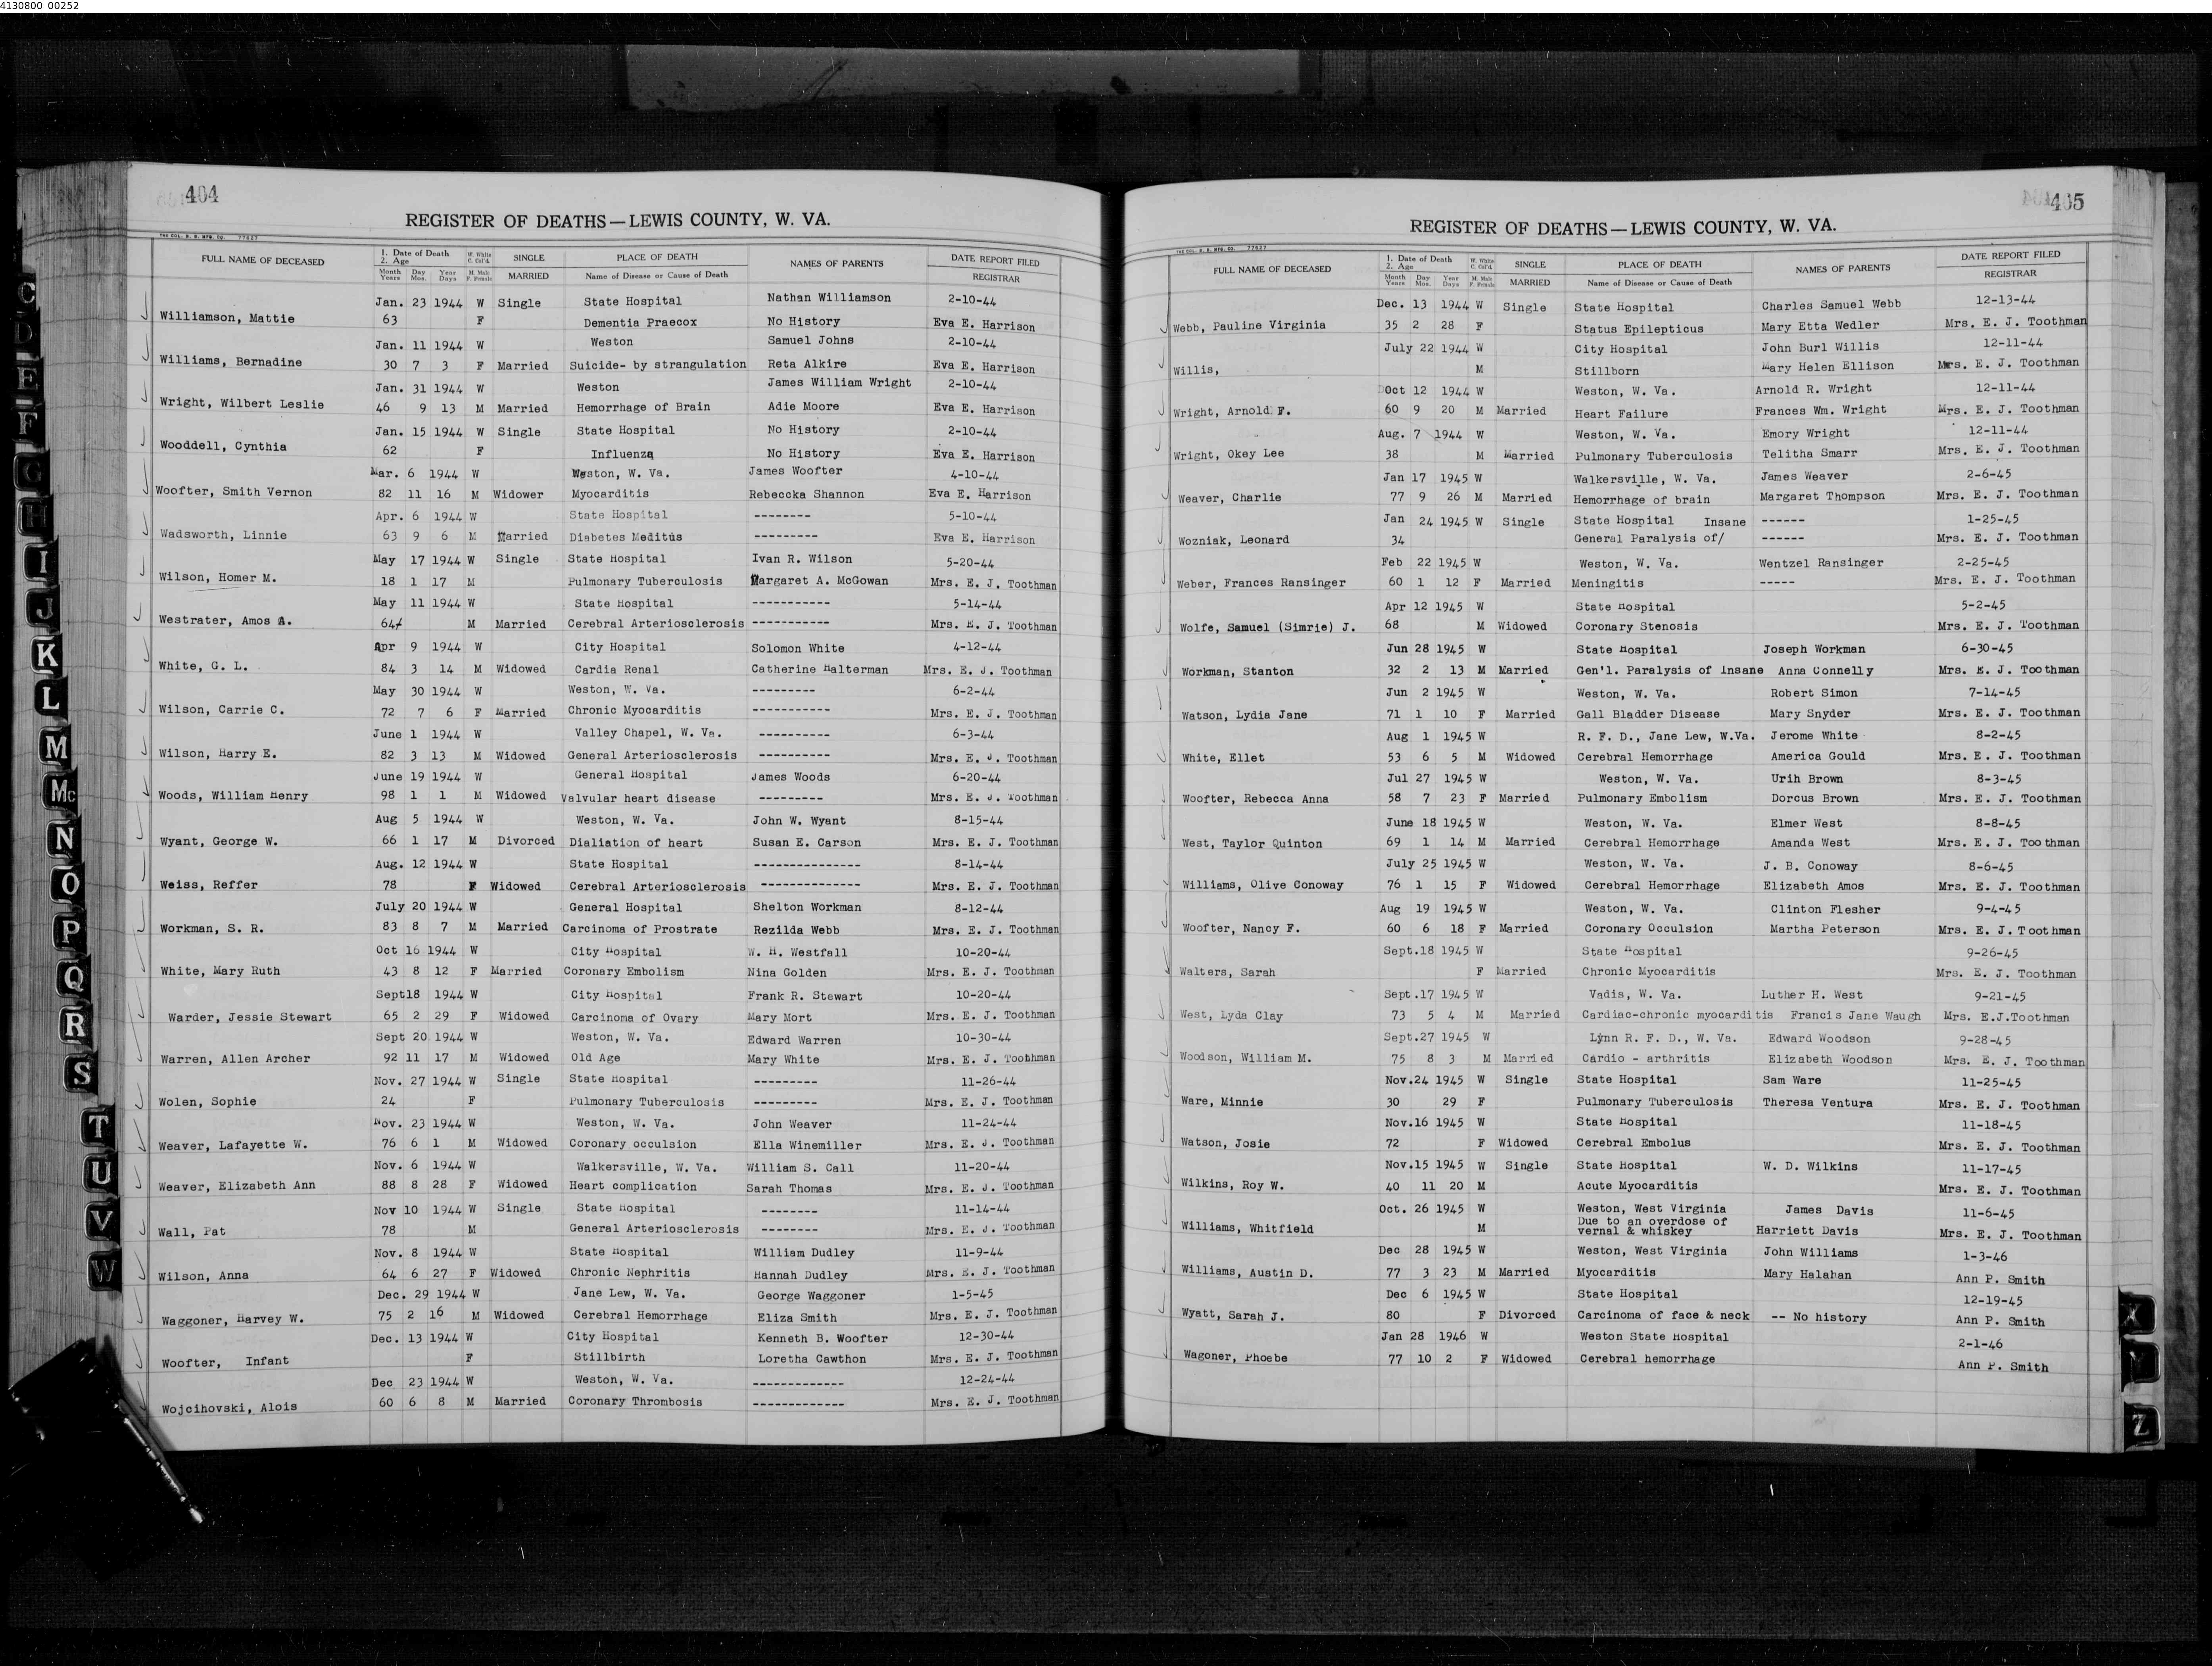 4130800_00252
404
REGISTER OF DEATHS—LEWIS COUNTY, W. VA.
THE COL. B. B. MFG. CO. 77627
FULL NAME OF DECEASED 1. Date of Death W. White SINGLE PLACE OF DEATH NAMES OF PARENTS DATE REPORT FILED
2. Age C. Col'd.
Month Day Year M. Male MARRIED Name of Disease or Cause of Death REGISTRAR
Years Mos. Days F. Female
Jan. 23 1944 W Single State Hospital Nathan Williamson 2-10-44
Williamson, Mattie 63 F Dementia Praecox No History Eva E. Harrison
Jan. 11 1944 W Weston Samuel Johns 2-10-44
Williams, Bernadine 30 7 3 F Married Suicide- by strangulation Reta Alkire Eva E. Harrison
Jan. 31 1944 W Weston James William Wright 2-10-44
Wright, Wilbert Leslie 46 9 13 M Married Hemorrhage of Brain Adie Moore Eva E. Harrison
Jan. 15 1944 W Single State Hospital No History 2-10-44
Wooddell, Cynthia 62 F Influenza No History Eva E. Harrison
Mar. 6 1944 W Weston, W. Va. James Woofter 4-10-44
Woofter, Smith Vernon 82 11 16 M Widower Myocarditis Rebeccka Shannon Eva E. Harrison
Apr. 6 1944 W State Hospital -------- 5-10-44
Wadsworth, Linnie 63 9 6 M Married Diabetes Meditus --------- Eva E. Harrison
May 17 1944 W Single State Hospital Ivan R. Wilson 5-20-44
Wilson, Homer M. 18 1 17 M Pulmonary Tuberculosis Margaret A. McGowan Mrs. E. J. Toothman
May 11 1944 W State Hospital ----------- 5-14-44
Westrater, Amos A. 64 M Married Cerebral Arteriosclerosis ----------- Mrs. E. J. Toothman
Apr 9 1944 W City Hospital Solomon White 4-12-44
White, G. L. 84 3 14 M Widowed Cardia Renal Catherine Halterman Mrs. E. J. Toothman
May 30 1944 W Weston, W. Va. --------- 6-2-44
Wilson, Carrie C. 72 7 6 F Married Chronic Myocarditis --------- Mrs. E. J. Toothman
June 1 1944 W Valley Chapel, W. Va. ---------- 6-3-44
Wilson, Harry E. 82 3 13 M Widowed General Arteriosclerosis ---------- Mrs. E. J. Toothman
June 19 1944 W General Hospital James Woods 6-20-44
Woods, William Henry 98 1 1 M Widowed Valvular heart disease --------- Mrs. E. J. Toothman
Aug 5 1944 W Weston, W. Va. John W. Wyant 8-15-44
Wyant, George W. 66 1 17 M Divorced Dialiation of heart Susan E. Carson Mrs. E. J. Toothman
Aug. 12 1944 W State Hospital -------------- 8-14-44
Weiss, Reffer 78 F Widowed Cerebral Arteriosclerosis -------------- Mrs. E. J. Toothman
July 20 1944 W General Hospital Shelton Workman 8-12-44
Workman, S. R. 83 8 7 M Married Carcinoma of Prostrate Rezilda Webb Mrs. E. J. Toothman
Oct 16 1944 W City Hospital W. H. Westfall 10-20-44
White, Mary Ruth 43 8 12 F Married Coronary Embolism Nina Golden Mrs. E. J. Toothman
Sept18 1944 W City Hospital Frank R. Stewart 10-20-44
Warder, Jessie Stewart 65 2 29 F Widowed Carcinoma of Ovary Mary Mort Mrs. E. J. Toothman
Sept 20 1944 W Weston, W. Va. Edward Warren 10-30-44
Warren, Allen Archer 92 11 17 M Widowed Old Age Mary White Mrs. E. J. Toothman
Nov. 27 1944 W Single State Hospital --------- 11-26-44
Wolen, Sophie 24 F Pulmonary Tuberculosis --------- Mrs. E. J. Toothman
Nov. 23 1944 W Weston, W. Va. John Weaver 11-24-44
Weaver, Lafayette W. 76 6 1 M Widowed Coronary occulsion Ella Winemiller Mrs. E. J. Toothman
Nov. 6 1944 W Walkersville, W. Va. William S. Call 11-20-44
Weaver, Elizabeth Ann 88 8 28 F Widowed Heart complication Sarah Thomas Mrs. E. J. Toothman
Nov 10 1944 W Single State Hospital -------- 11-14-44
Wall, Pat 78 M General Arteriosclerosis -------- Mrs. E. J. Toothman
Nov. 8 1944 W State Hospital William Dudley 11-9-44
Wilson, Anna 64 6 27 F Widowed Chronic Nephritis Hannah Dudley Mrs. E. J. Toothman
Dec. 29 1944 W Jane Lew, W. Va. George Waggoner 1-5-45
Waggoner, Harvey W. 75 2 16 M Widowed Cerebral Hemorrhage Eliza Smith Mrs. E. J. Toothman
Dec. 13 1944 W City Hospital Kenneth B. Woofter 12-30-44
Woofter, Infant F Stillbirth Loretha Cawthon Mrs. E. J. Toothman
Dec 23 1944 W Weston, W. Va. ------------- 12-24-44
Wojcihovski, Alois 60 6 8 M Married Coronary Thrombosis ------------- Mrs. E. J. Toothman
C
D
E
F
G
H
I
J
K
L
M
Mc
N
O
P
Q
R
S
T
U
V
W
405
REGISTER OF DEATHS—LEWIS COUNTY, W. VA.
THE COL. B. B. MFG. CO. 77627
FULL NAME OF DECEASED 1. Date of Death W. White SINGLE PLACE OF DEATH NAMES OF PARENTS DATE REPORT FILED
2. Age C. Col'd.
Month Day Year M. Male MARRIED Name of Disease or Cause of Death REGISTRAR
Years Mos. Days F. Female
Dec. 13 1944 W Single State Hospital Charles Samuel Webb 12-13-44
Webb, Pauline Virginia 35 2 28 F Status Epilepticus Mary Etta Wedler Mrs. E. J. Toothman
July 22 1944 W City Hospital John Burl Willis 12-11-44
Willis, M Stillborn Mary Helen Ellison Mrs. E. J. Toothman
Oct 12 1944 W Weston, W. Va. Arnold R. Wright 12-11-44
Wright, Arnold F. 60 9 20 M Married Heart Failure Frances Wm. Wright Mrs. E. J. Toothman
Aug. 7 1944 W Weston, W. Va. Emory Wright 12-11-44
Wright, Okey Lee 38 M Married Pulmonary Tuberculosis Telitha Smarr Mrs. E. J. Toothman
Jan 17 1945 W Walkersville, W. Va. James Weaver 2-6-45
Weaver, Charlie 77 9 26 M Married Hemorrhage of brain Margaret Thompson Mrs. E. J. Toothman
Jan 24 1945 W Single State Hospital Insane ------ 1-25-45
Wozniak, Leonard 34 General Paralysis of/ ------ Mrs. E. J. Toothman
Feb 22 1945 W Weston, W. Va. Wentzel Ransinger 2-25-45
Weber, Frances Ransinger 60 1 12 F Married Meningitis ----- Mrs. E. J. Toothman
Apr 12 1945 W State Hospital 5-2-45
Wolfe, Samuel (Simrie) J. 68 M Widowed Coronary Stenosis Mrs. E. J. Toothman
Jun 28 1945 W State Hospital Joseph Workman 6-30-45
Workman, Stanton 32 2 13 M Married Gen'l. Paralysis of Insane Anna Connelly Mrs. E. J. Toothman
Jun 2 1945 W Weston, W. Va. Robert Simon 7-14-45
Watson, Lydia Jane 71 1 10 F Married Gall Bladder Disease Mary Snyder Mrs. E. J. Toothman
Aug 1 1945 W R. F. D., Jane Lew, W.Va. Jerome White 8-2-45
White, Ellet 53 6 5 M Widowed Cerebral Hemorrhage America Gould Mrs. E. J. Toothman
Jul 27 1945 W Weston, W. Va. Urih Brown 8-3-45
Woofter, Rebecca Anna 58 7 23 F Married Pulmonary Embolism Dorcus Brown Mrs. E. J. Toothman
June 18 1945 W Weston, W. Va. Elmer West 8-8-45
West, Taylor Quinton 69 1 14 M Married Cerebral Hemorrhage Amanda West Mrs. E. J. Toothman
July 25 1945 W Weston, W. Va. J. B. Conoway 8-6-45
Williams, Olive Conoway 76 1 15 F Widowed Cerebral Hemorrhage Elizabeth Amos Mrs. E. J. Toothman
Aug 19 1945 W Weston, W. Va. Clinton Flesher 9-4-45
Woofter, Nancy F. 60 6 18 F Married Coronary Occulsion Martha Peterson Mrs. E. J. Toothman
Sept.18 1945 W State Hospital 9-26-45
Walters, Sarah F Married Chronic Myocarditis Mrs. E. J. Toothman
Sept.17 1945 W Vadis, W. Va. Luther H. West 9-21-45
West, Lyda Clay 73 5 4 M Married Cardiac-chronic myocarditis Francis Jane Waugh Mrs. E.J.Toothman
Sept.27 1945 W Lynn R. F. D., W. Va. Edward Woodson 9-28-45
Woodson, William M. 75 8 3 M Married Cardio - arthritis Elizabeth Woodson Mrs. E. J. Toothman
Nov.24 1945 W Single State Hospital Sam Ware 11-25-45
Ware, Minnie 30 29 F Pulmonary Tuberculosis Theresa Ventura Mrs. E. J. Toothman
Nov.16 1945 W State Hospital 11-18-45
Watson, Josie 72 F Widowed Cerebral Embolus Mrs. E. J. Toothman
Nov.15 1945 W Single State Hospital W. D. Wilkins 11-17-45
Wilkins, Roy W. 40 11 20 M Acute Myocarditis Mrs. E. J. Toothman
Oct. 26 1945 W Weston, West Virginia James Davis 11-6-45
Due to an overdose of
Williams, Whitfield M vernal & whiskey Harriett Davis Mrs. E. J. Toothman
Dec 28 1945 W Weston, West Virginia John Williams 1-3-46
Williams, Austin D. 77 3 23 M Married Myocarditis Mary Halahan Ann P. Smith
Dec 6 1945 W State Hospital 12-19-45
Wyatt, Sarah J. 80 F Divorced Carcinoma of face & neck -- No history Ann P. Smith
Jan 28 1946 W Weston State Hospital 2-1-46
Wagoner, Phoebe 77 10 2 F Widowed Cerebral hemorrhage Ann P. Smith
X
Y
Z